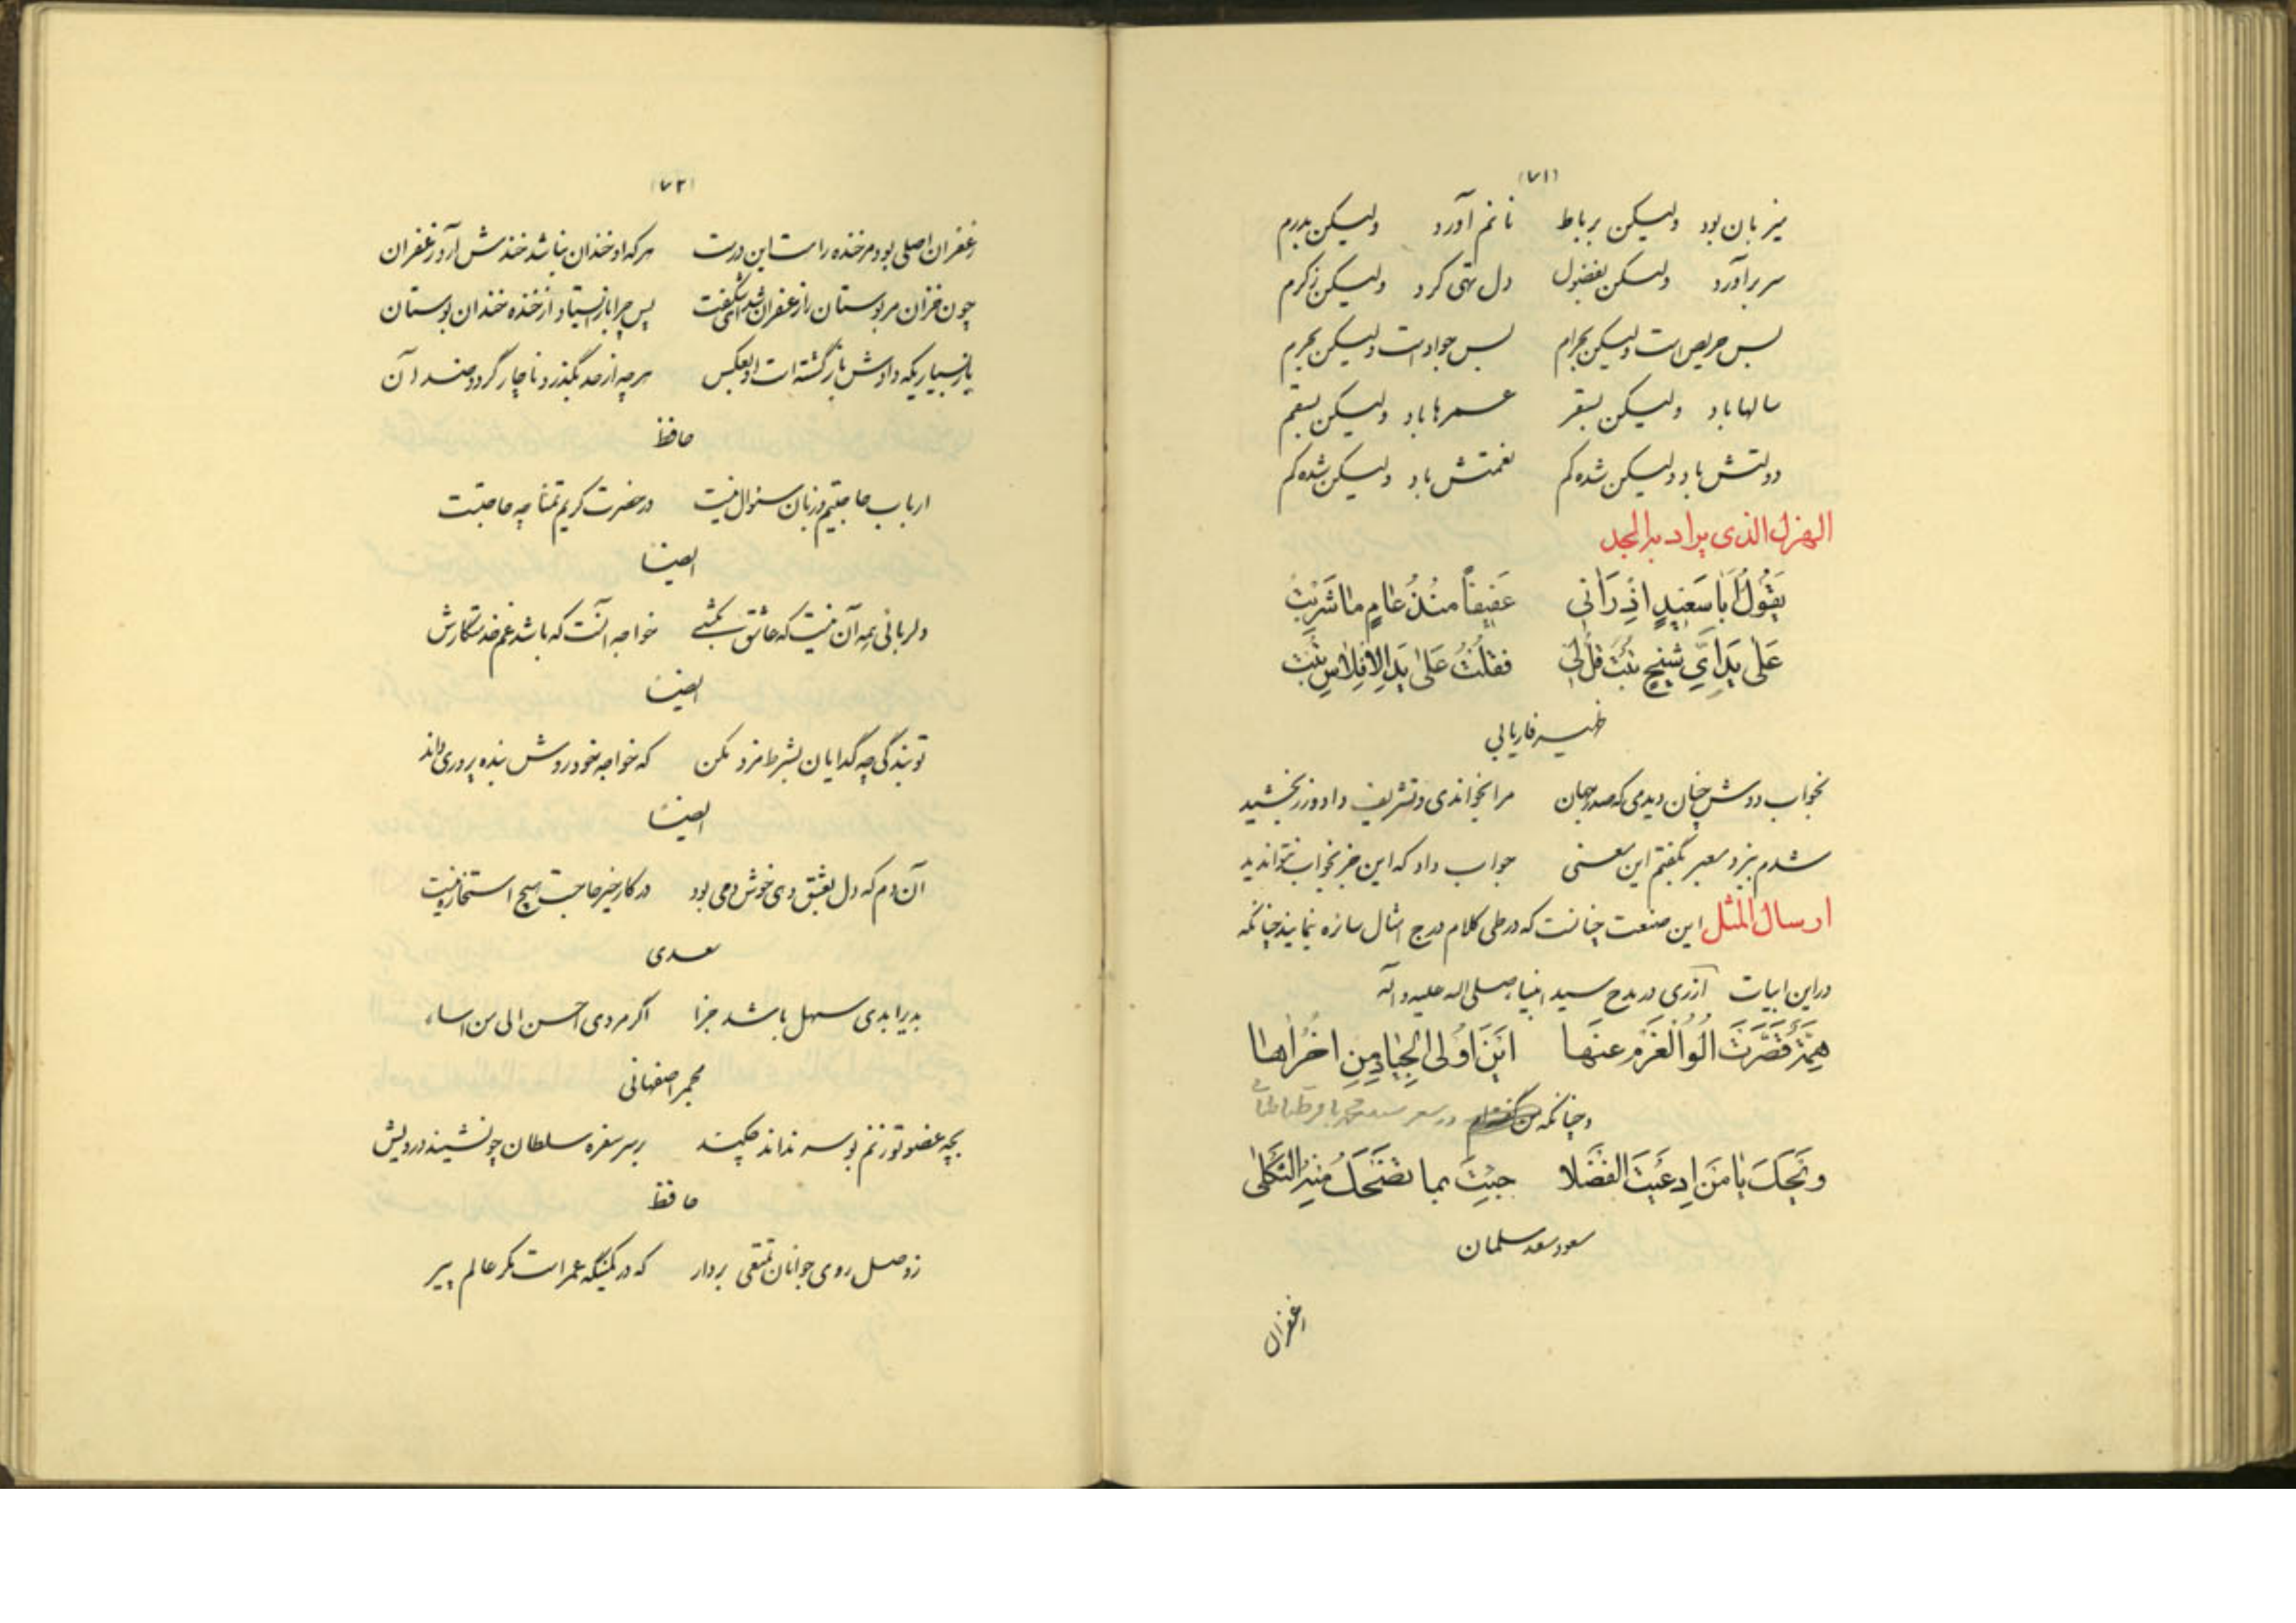 (۷۱)
میزبان بود ولیکن برباط نانم آورد ولیکن بدرم
سر برآورد ولیکن بفضول دل تهی کرد ولیکن زکرم
بس حریص است ولیکن بحرام بس جواد است ولیکن بحرم
سالها باد ولیکن بسقر عمرها باد ولیکن بسقم
دولتش باد ولیکن شده کم نعمتش باد ولیکن شده کم
الهزل الذی یراد به الجد
یَقُولُ اَبا سَعیدٍ اِذْ رَآنی عَفیفاً مُنْذُ عامٍ ما شَرِبْتُ
عَلی یَدِ اَیِّ شَیْخٍ تُبْتَ قُلْ لی فَقُلْتُ عَلی یَدِ الاِفْلاسِ تُبْتُ
ظهیر فاریابی
بخواب دوش چنان دیدمی که صدر جهان مرا بخواندی و تشریف داد و زر بخشید
شدم بنزد معبر بگفتم این معنی جواب داد که این جز بخواب نتوان دید
ارسال المثل این صنعت چنانست که در طی کلام درج امثال سازه نمایند چنانکه
در این ابیات آزری در مدح سید انبیاء صلی الله علیه و آله
هِمَّةٌ قَصَّرَتْ اُولُوا الْعَزْمِ عَنْها اَیْنَ اُولَی الْجِیادِ مِنْ اُخْراها
و چنانکه من
وَیْحَکَ یا مَنْ اِدَّعَیْتَ الْفُضَلا جِئْتَ بِما تَضْحَکُ مِنْهُ الثَّکْلی
مسعود سعد سلمان
(۷۲)
زعفران اصلی بود مر خنده را است این درست هر که او خندان نباشد خندش آرد زعفران
چون خزان مر بوستان را زعفران شد ای شگفت پس چرا باز ایستاد از خنده خندان بوستان
یا ز بسیاریکه دادش بازگشته است او بعکس هر چه از حد بگذرد ناچار گردد ضد آن
حافظ
ارباب حاجتیم و زبان سئوال نیست در حضرت کریم تمنا چه حاجتست
ایضاً
دلربائی همه آن نیست که عاشق بکشی خواجه آنست که باشد غم خدمتکارش
ایضاً
تو بندگی چه گدایان بشرط مزد مکن که خواجه خود روش بنده پروری داند
ایضاً
آن دم که دل بعشق دهی خوش دمی بود در کار خیر حاجت هیچ استخاره نیست
سعدی
بدی را بدی سهل باشد جزا اگر مردی احسن الی من اساء
مجمر اصفهانی
بچه عضو تو زنم بوسه نداند چکند بر سر سفره سلطان چو نشیند درویش
حافظ
ز وصل روی جوانان تمتعی بردار که در کمینگه عمر است مکر عالم پیر